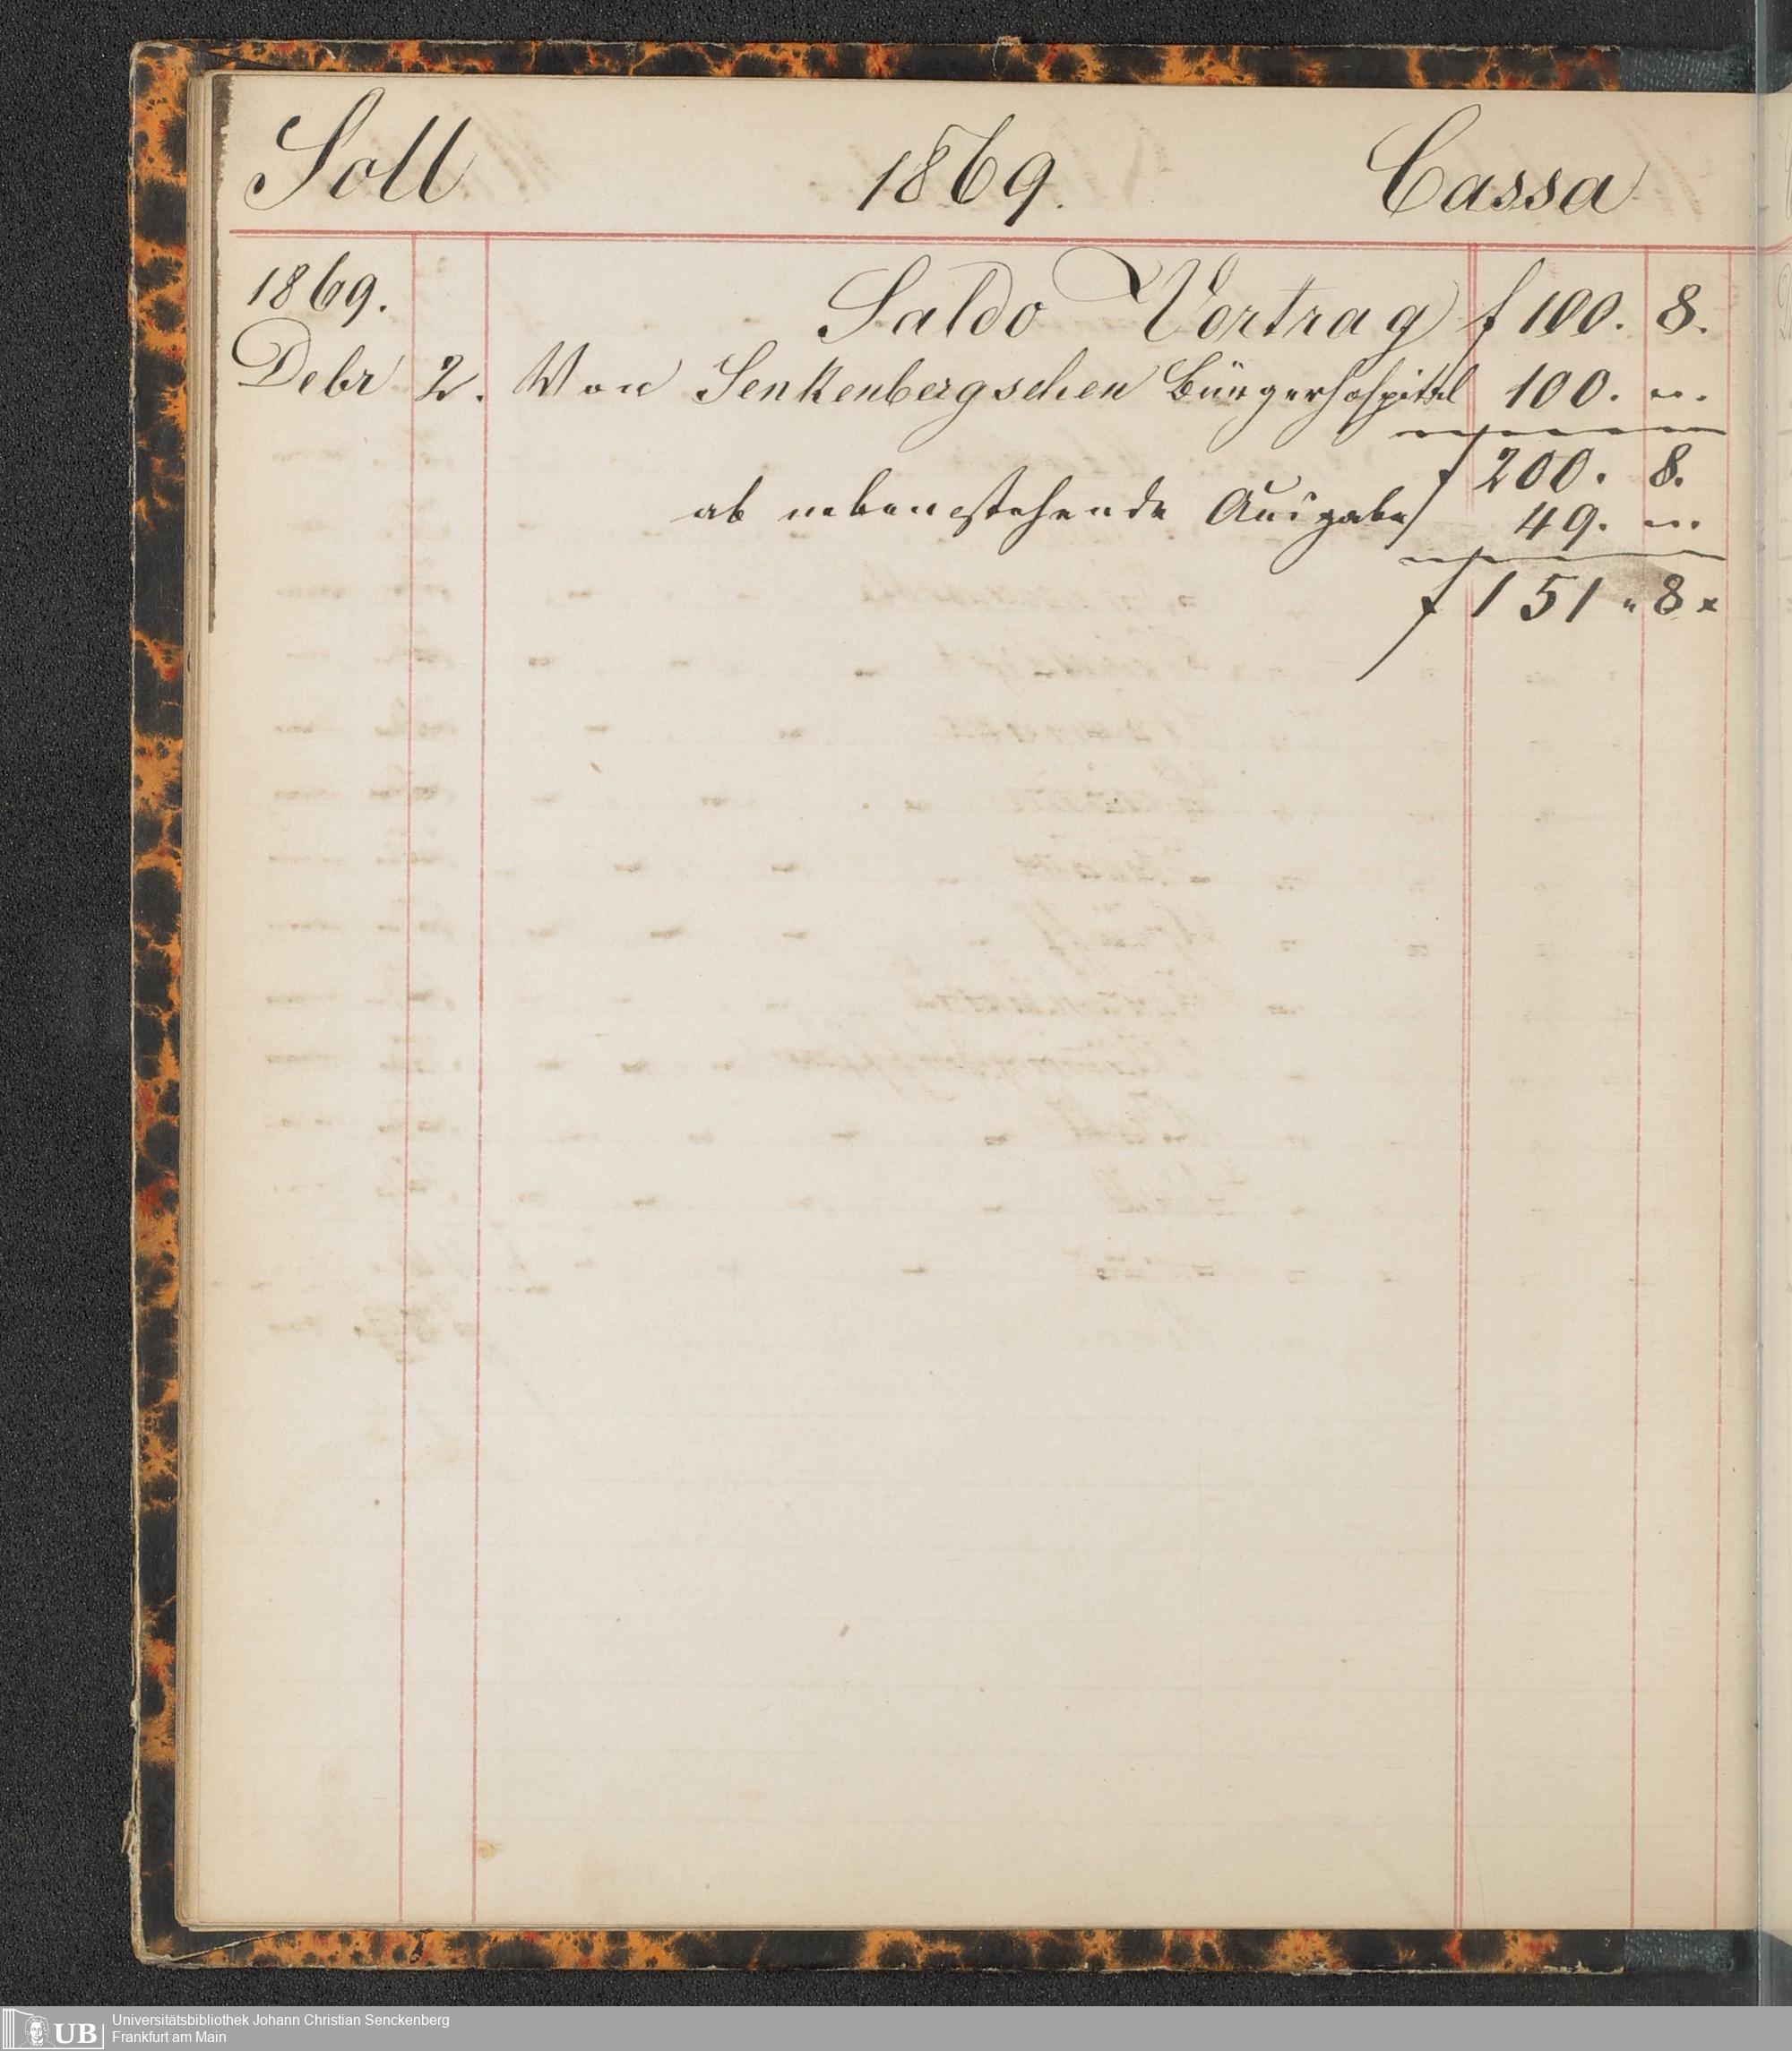 Soll 1869. Cassa
1869. Saldo Vortrag f 100. 8.
Debr 2. Von Senkenbergschen Bürgerhospital 100. „.
f 200. 8.
ab nebenstehende Ausgabe 49. „.
f 151 „ 8 x
UB Universitätsbibliothek Johann Christian Senckenberg
Frankfurt am Main